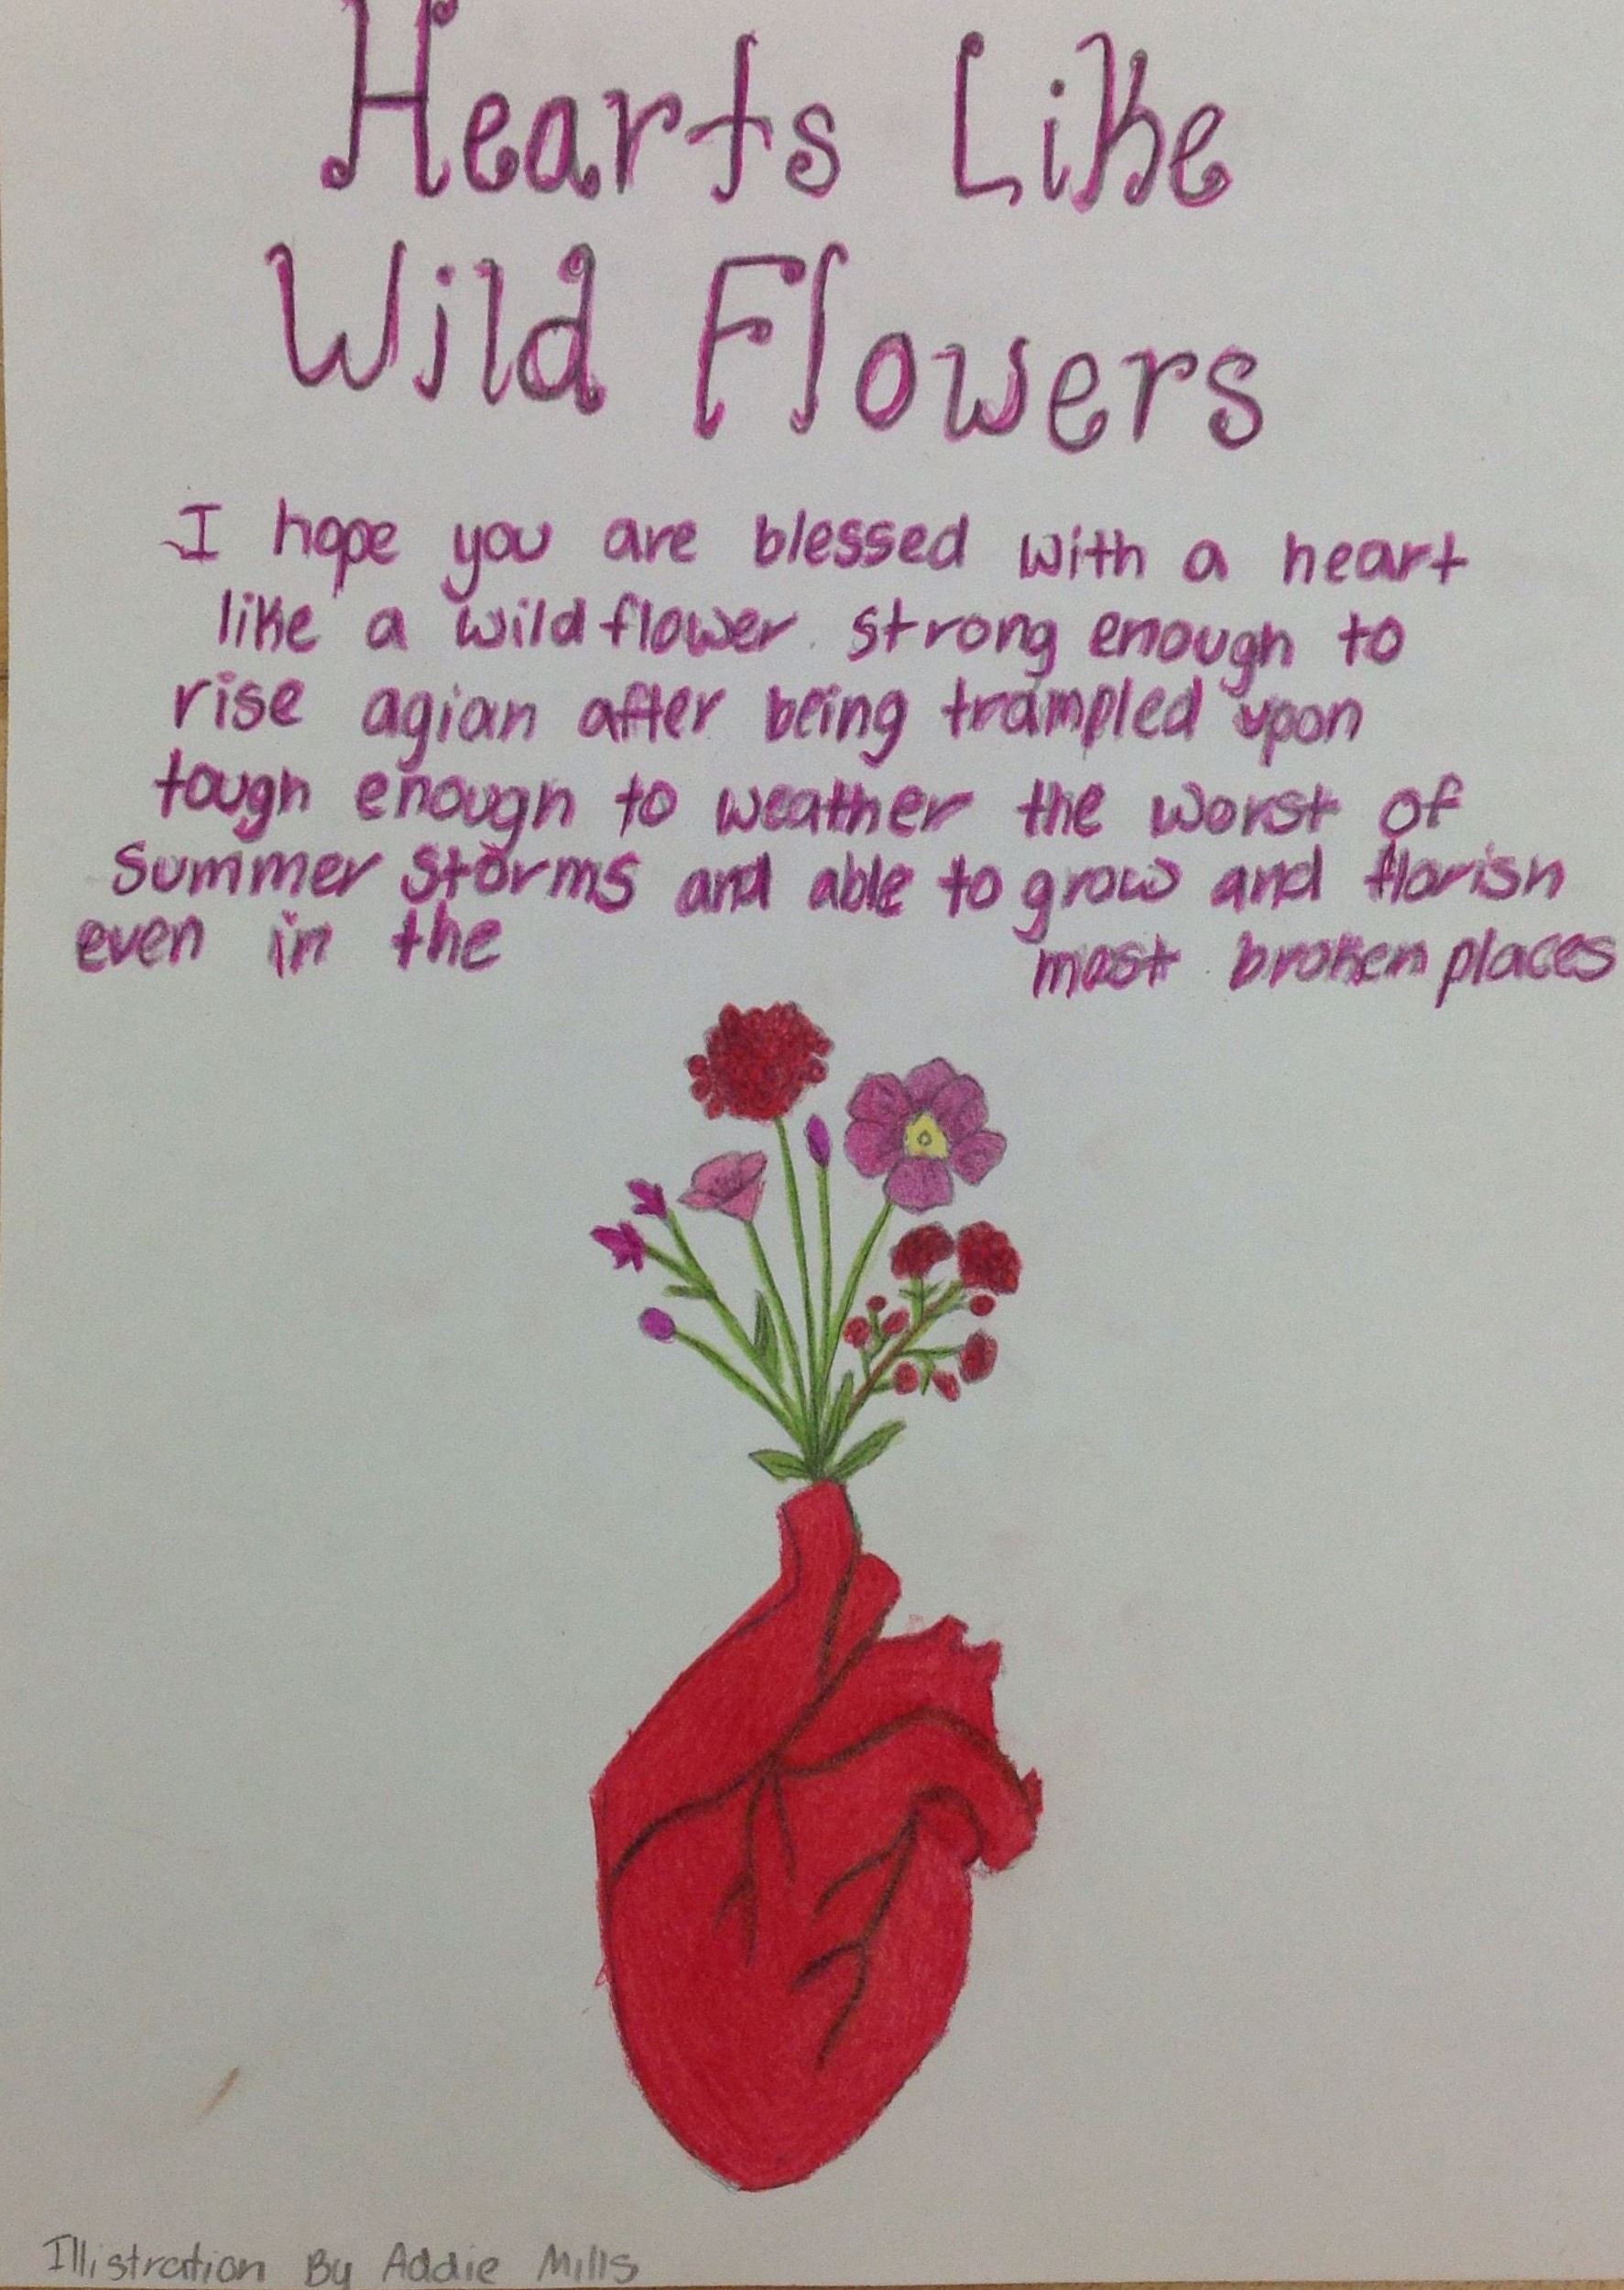 Hearts Like
Wild Flowers
I hope you are blessed with a heart
like a wild flower. strong enough to
rise agian after being trampled upon
tough enough to weather the worst of
Summer storms and able to grow and florish
even in the most broken places
Illistration By Addie Mills